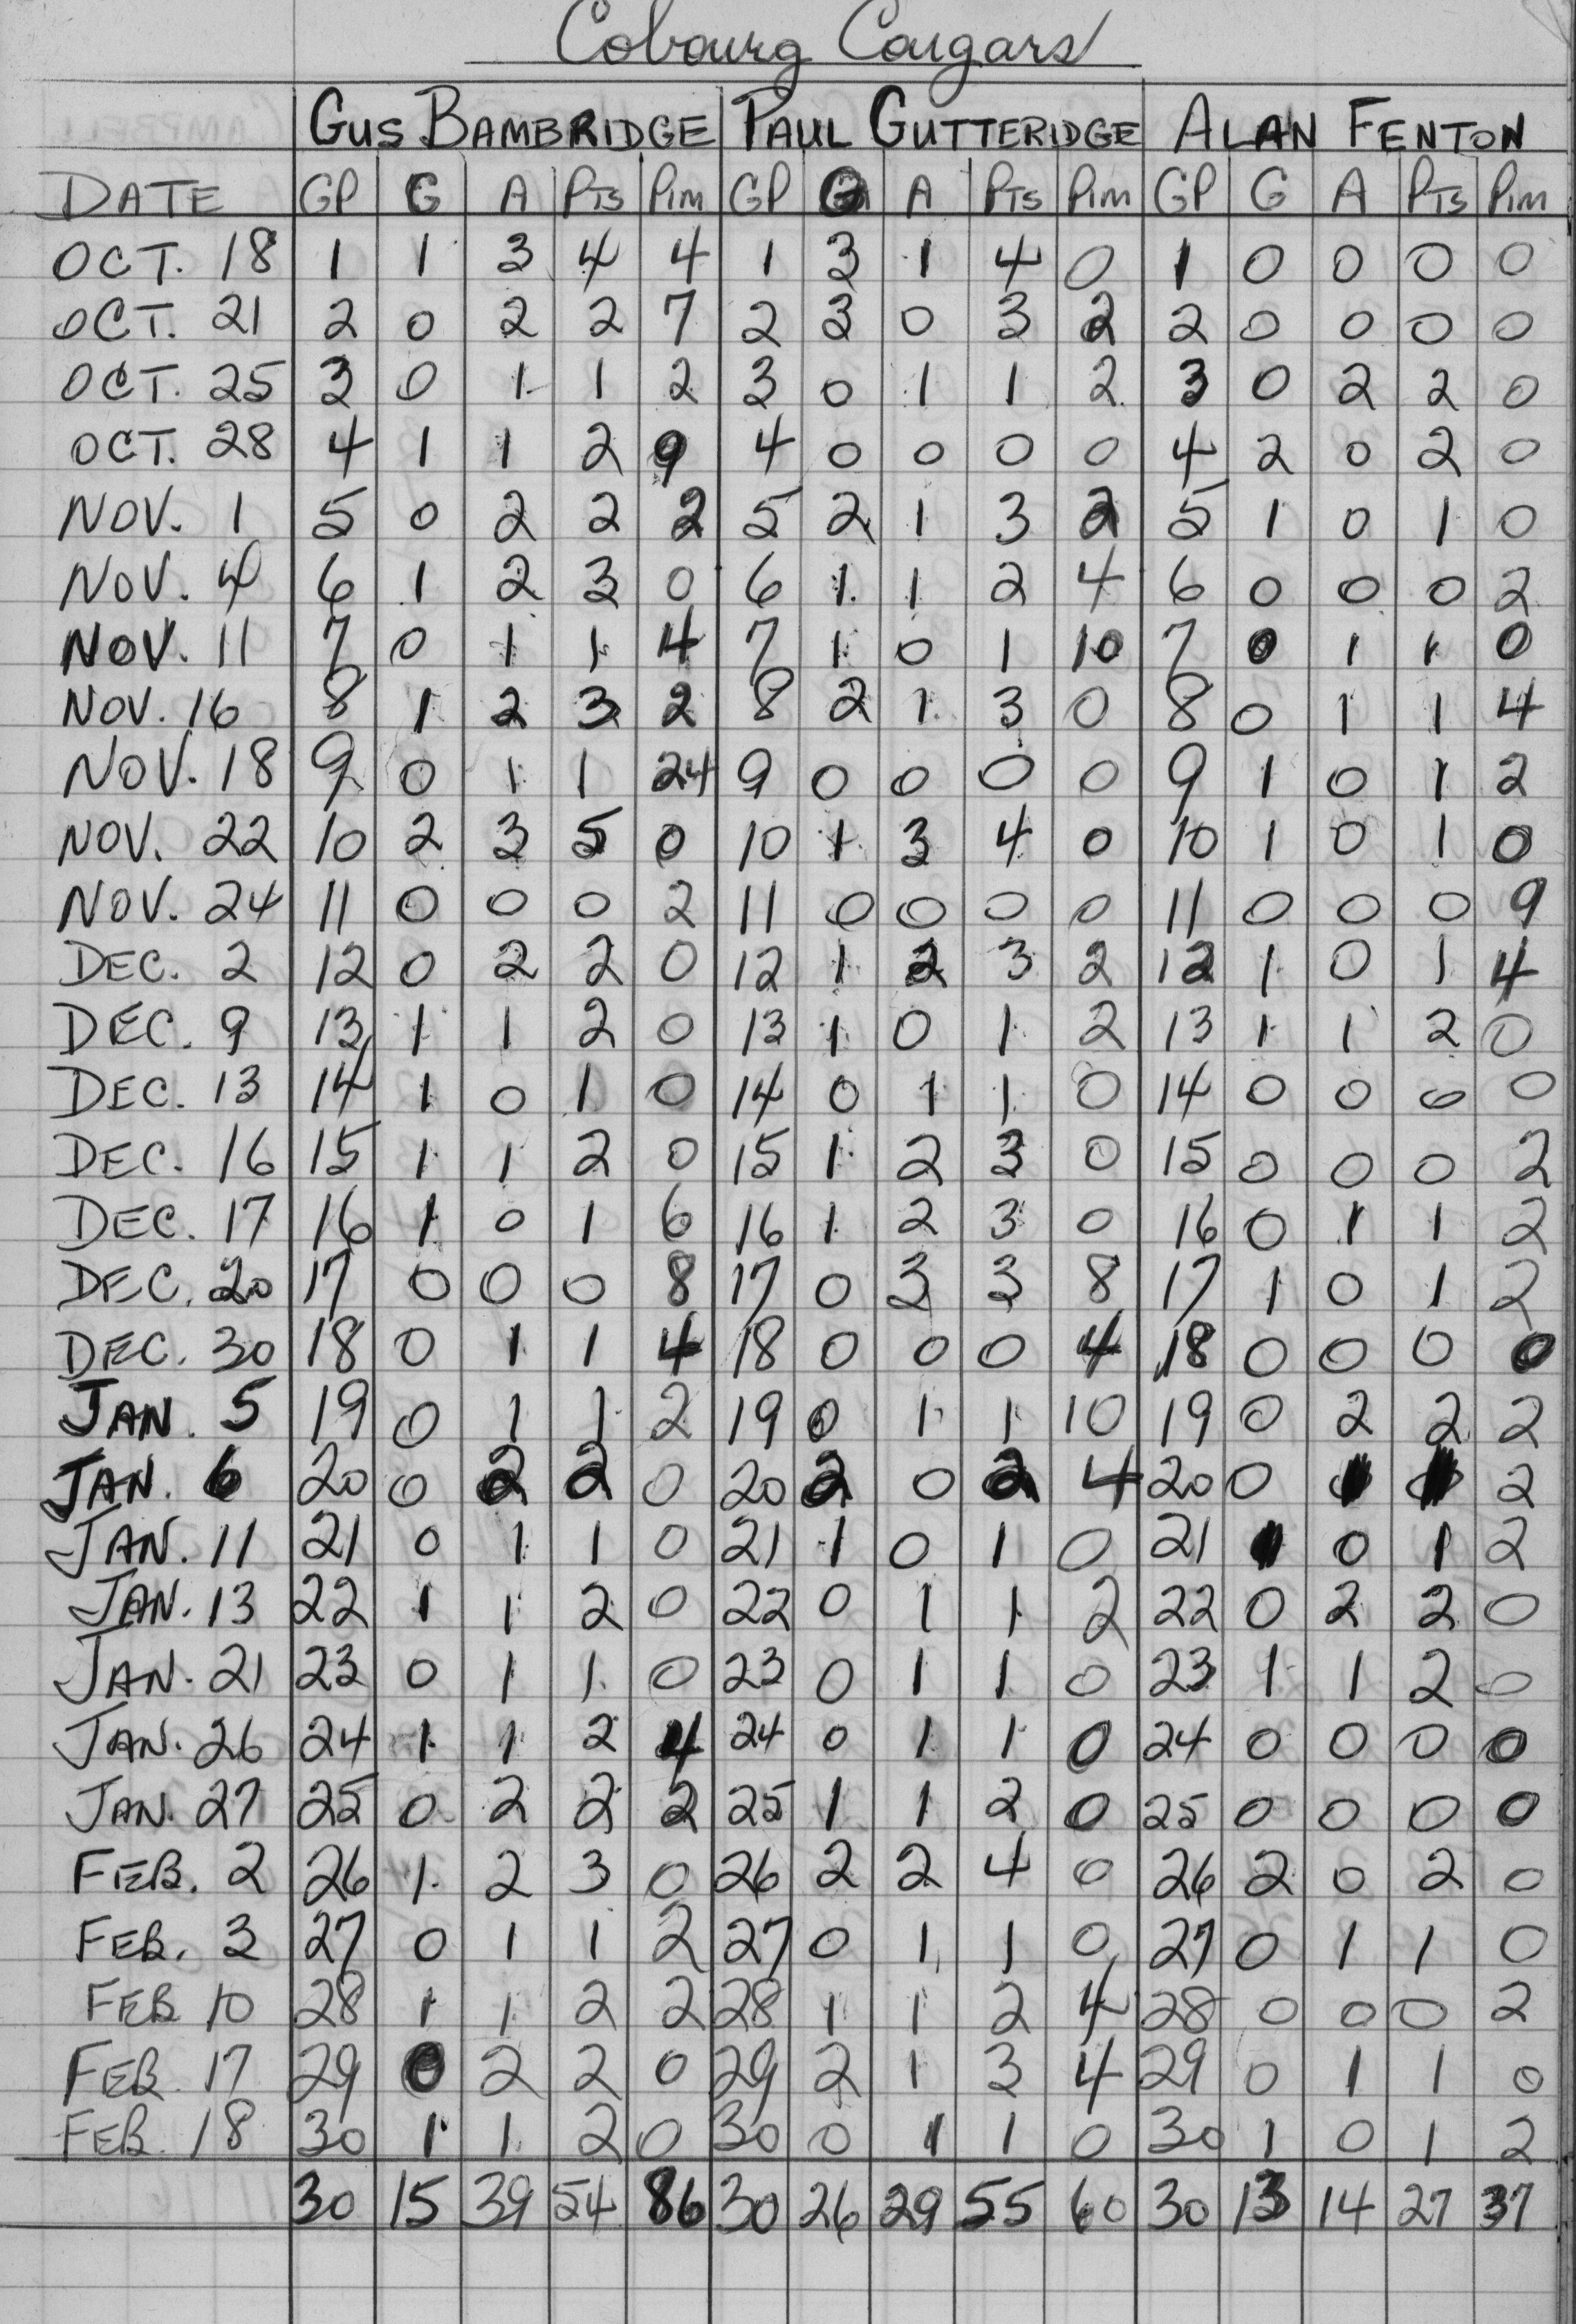 Cobourg Cougars
GUS BAMBRIDGE PAUL GUTTERIDGE ALAN FENTON
DATE GP G A PTS PIM GP G A PTS PIM GP G A PTS PIM
OCT. 18 1 1 3 4 4 1 3 1 4 0 1 0 0 0 0
OCT. 21 2 0 2 2 7 2 3 0 3 2 2 0 0 0 0
OCT. 25 3 0 1 1 2 3 0 1 1 2 3 0 2 2 0
OCT. 28 4 1 1 2 9 4 0 0 0 0 4 2 0 2 0
NOV. 1 5 0 2 2 2 5 2 1 3 2 5 1 0 1 0
NOV. 4 6 1 2 3 0 6 1 1 2 4 6 0 0 0 2
NOV. 11 7 0 1 1 4 7 1 0 1 10 7 0 1 1 0
NOV. 16 8 1 2 3 2 8 2 1 3 0 8 0 1 1 4
NOV. 18 9 0 1 1 24 9 0 0 0 0 9 1 0 1 2
NOV. 22 10 2 3 5 0 10 1 3 4 0 10 1 0 1 0
NOV. 24 11 0 0 0 2 11 0 0 0 0 11 0 0 0 9
DEC. 2 12 0 2 2 0 12 1 2 3 2 12 1 0 1 4
DEC. 9 13 1 1 2 0 13 1 0 1 2 13 1 1 2 0
DEC. 13 14 1 0 1 0 14 0 1 1 0 14 0 0 0 0
DEC. 16 15 1 1 2 0 15 1 2 3 0 15 0 0 0 2
DEC. 17 16 1 0 1 6 16 1 2 3 0 16 0 1 1 2
DEC. 20 17 0 0 0 8 17 0 3 3 8 17 1 0 1 2
DEC. 30 18 0 1 1 4 18 0 0 0 4 18 0 0 0 0
JAN. 5 19 0 1 1 2 19 0 1 1 10 19 0 2 2 2
JAN. 6 20 0 2 2 0 20 2 0 2 4 20 0 1 1 2
JAN. 11 21 0 1 1 0 21 1 0 1 0 21 1 0 1 2
JAN. 13 22 1 1 2 0 22 0 1 1 2 22 0 2 2 0
JAN. 21 23 0 1 1 0 23 0 1 1 0 23 1 1 2 0
JAN. 26 24 1 1 2 4 24 0 1 1 0 24 0 0 0 0
JAN. 27 25 0 2 2 2 25 1 1 2 0 25 0 0 0 0
FEB. 2 26 1 2 3 0 26 2 2 4 0 26 2 0 2 0
FEB. 3 27 0 1 1 2 27 0 1 1 0 27 0 1 1 0
FEB 10 28 1 1 2 2 28 1 1 2 4 28 0 0 0 2
FEB. 17 29 0 2 2 0 29 2 1 3 4 29 0 1 1 0
FEB. 18 30 1 1 2 0 30 0 1 1 0 30 1 0 1 2
30 15 39 54 86 30 26 29 55 60 30 13 14 27 37